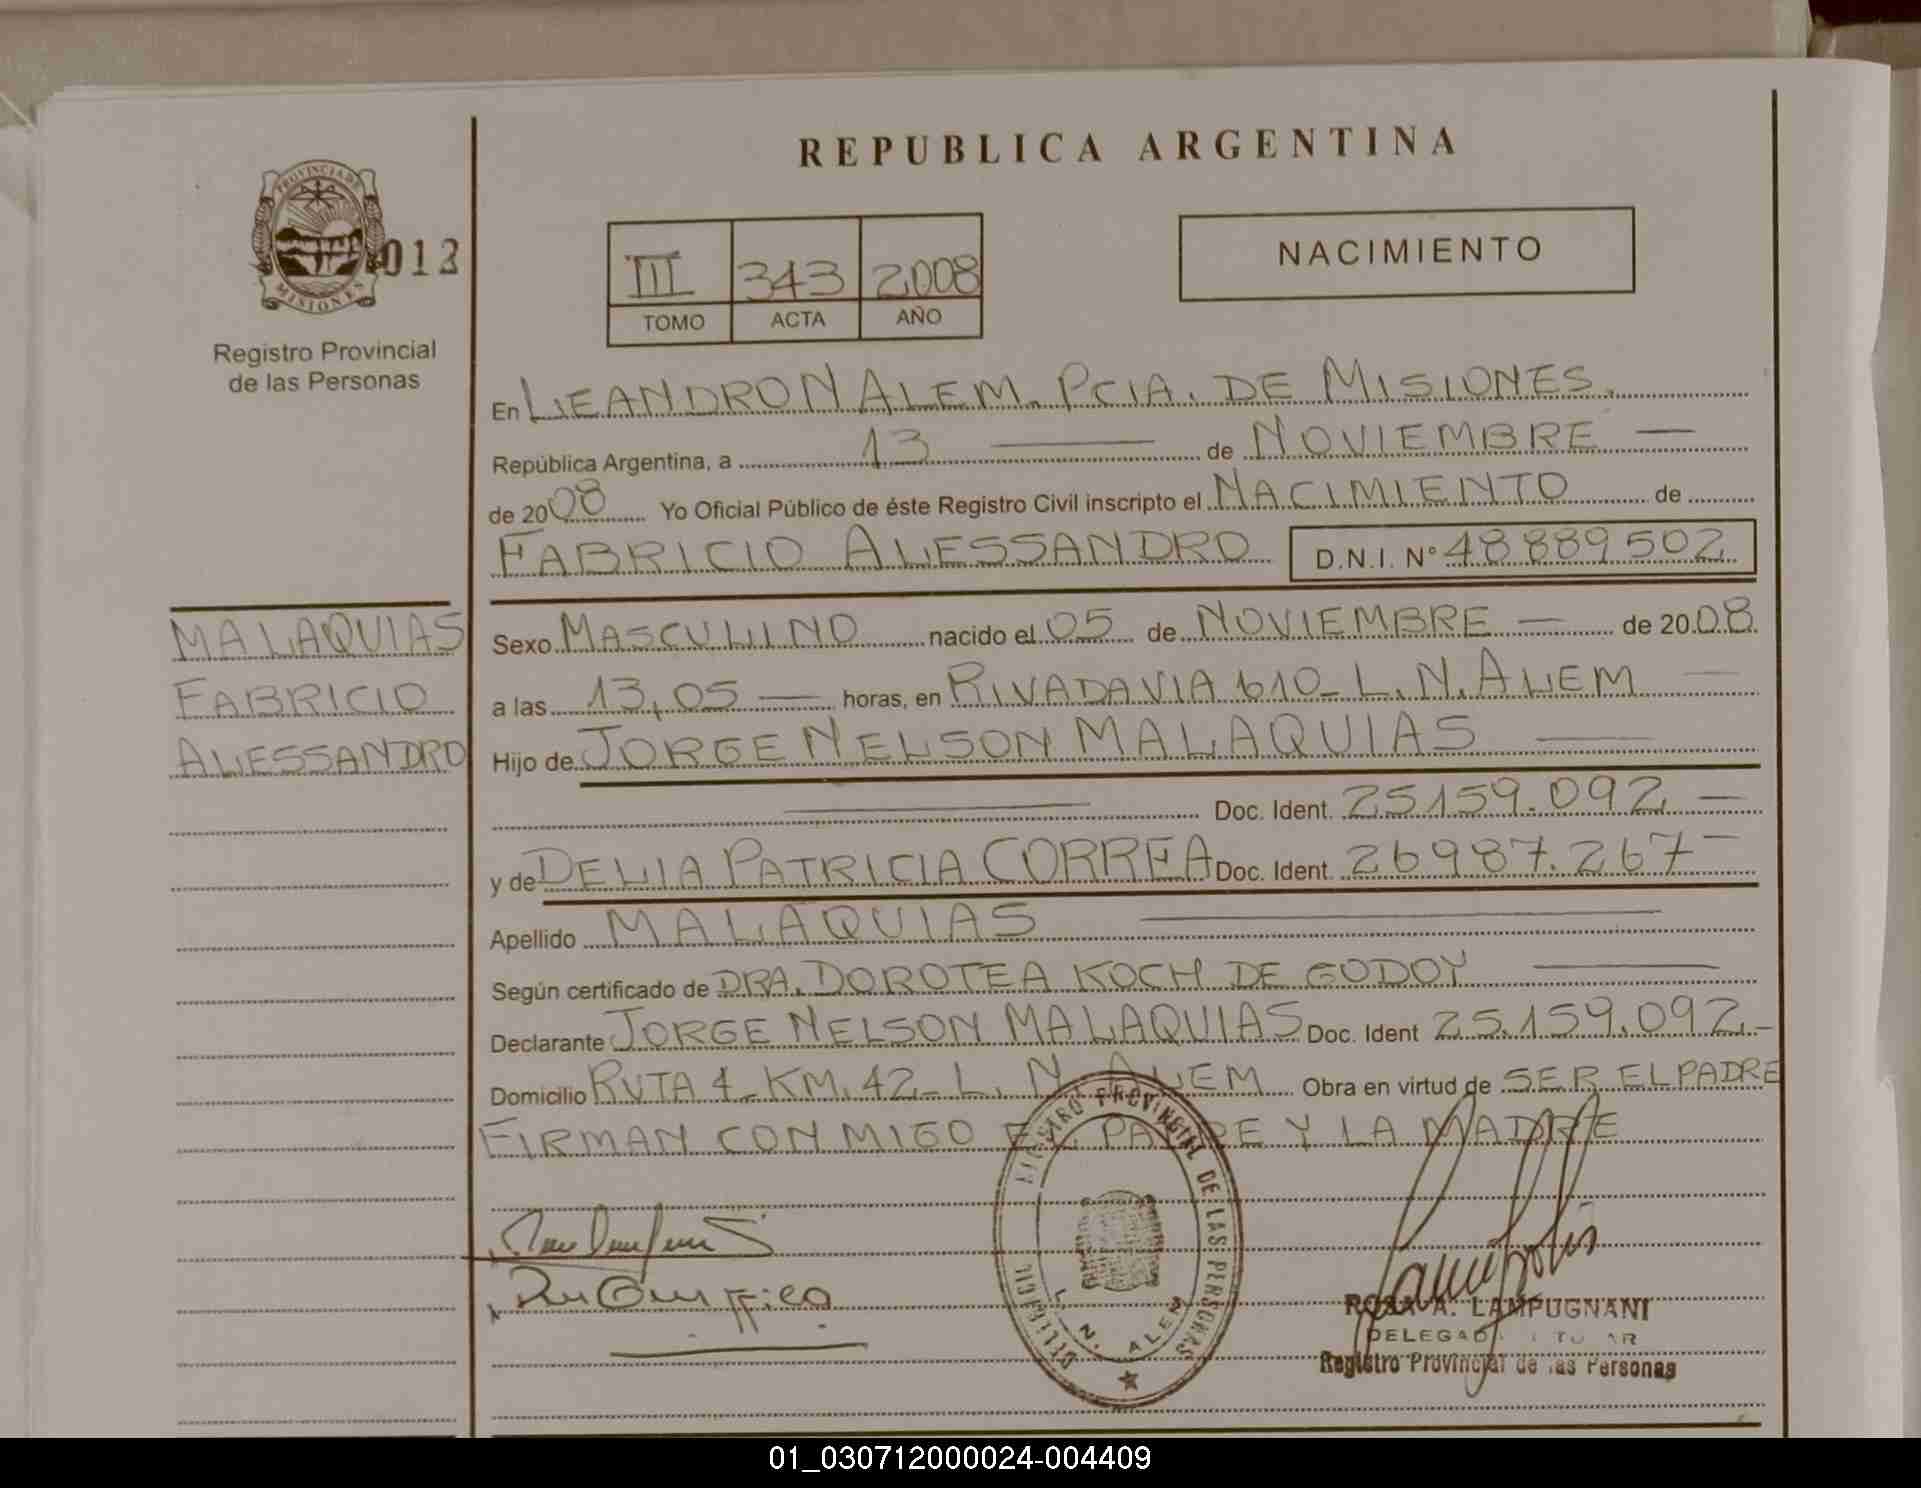 REPUBLICA ARGENTINA
PROVINCIA DE
MISIONES
013
Registro Provincial
de las Personas
III 343 2008
TOMO ACTA AÑO
NACIMIENTO
En LEANDRO N ALEM. PCIA. DE MISIONES.
República Argentina, a 13 — de NOVIEMBRE —
de 2008 Yo Oficial Público de éste Registro Civil inscripto el NACIMIENTO de
FABRICIO ALESSANDRO D.N.I. N° 48889502
MALAQUIAS
FABRICIO
ALESSANDRO
Sexo MASCULINO nacido el 05 de NOVIEMBRE — de 2008
a las 13,05 — horas, en RIVADAVIA 610- L. N. ALEM —
Hijo de JORGE NELSON MALAQUIAS —
Doc. Ident. 25159.092 —
y de DELIA PATRICIA CORREA Doc. Ident. 26987.267 —
Apellido MALAQUIAS —
Según certificado de DRA. DOROTEA KOCH DE GODOY —
Declarante JORGE NELSON MALAQUIAS Doc. Ident 25.159.092.-
Domicilio RUTA 4- KM. 42- L. N. ALEM Obra en virtud de SER EL PADRE
FIRMAN CONMIGO EL PADRE Y LA MADRE
REGISTRO PROVINCIAL DE LAS PERSONAS
L. N. ALEM
ROSA A. LAMPUGNANI
Registro Provincial de las Personas
01_030712000024-004409